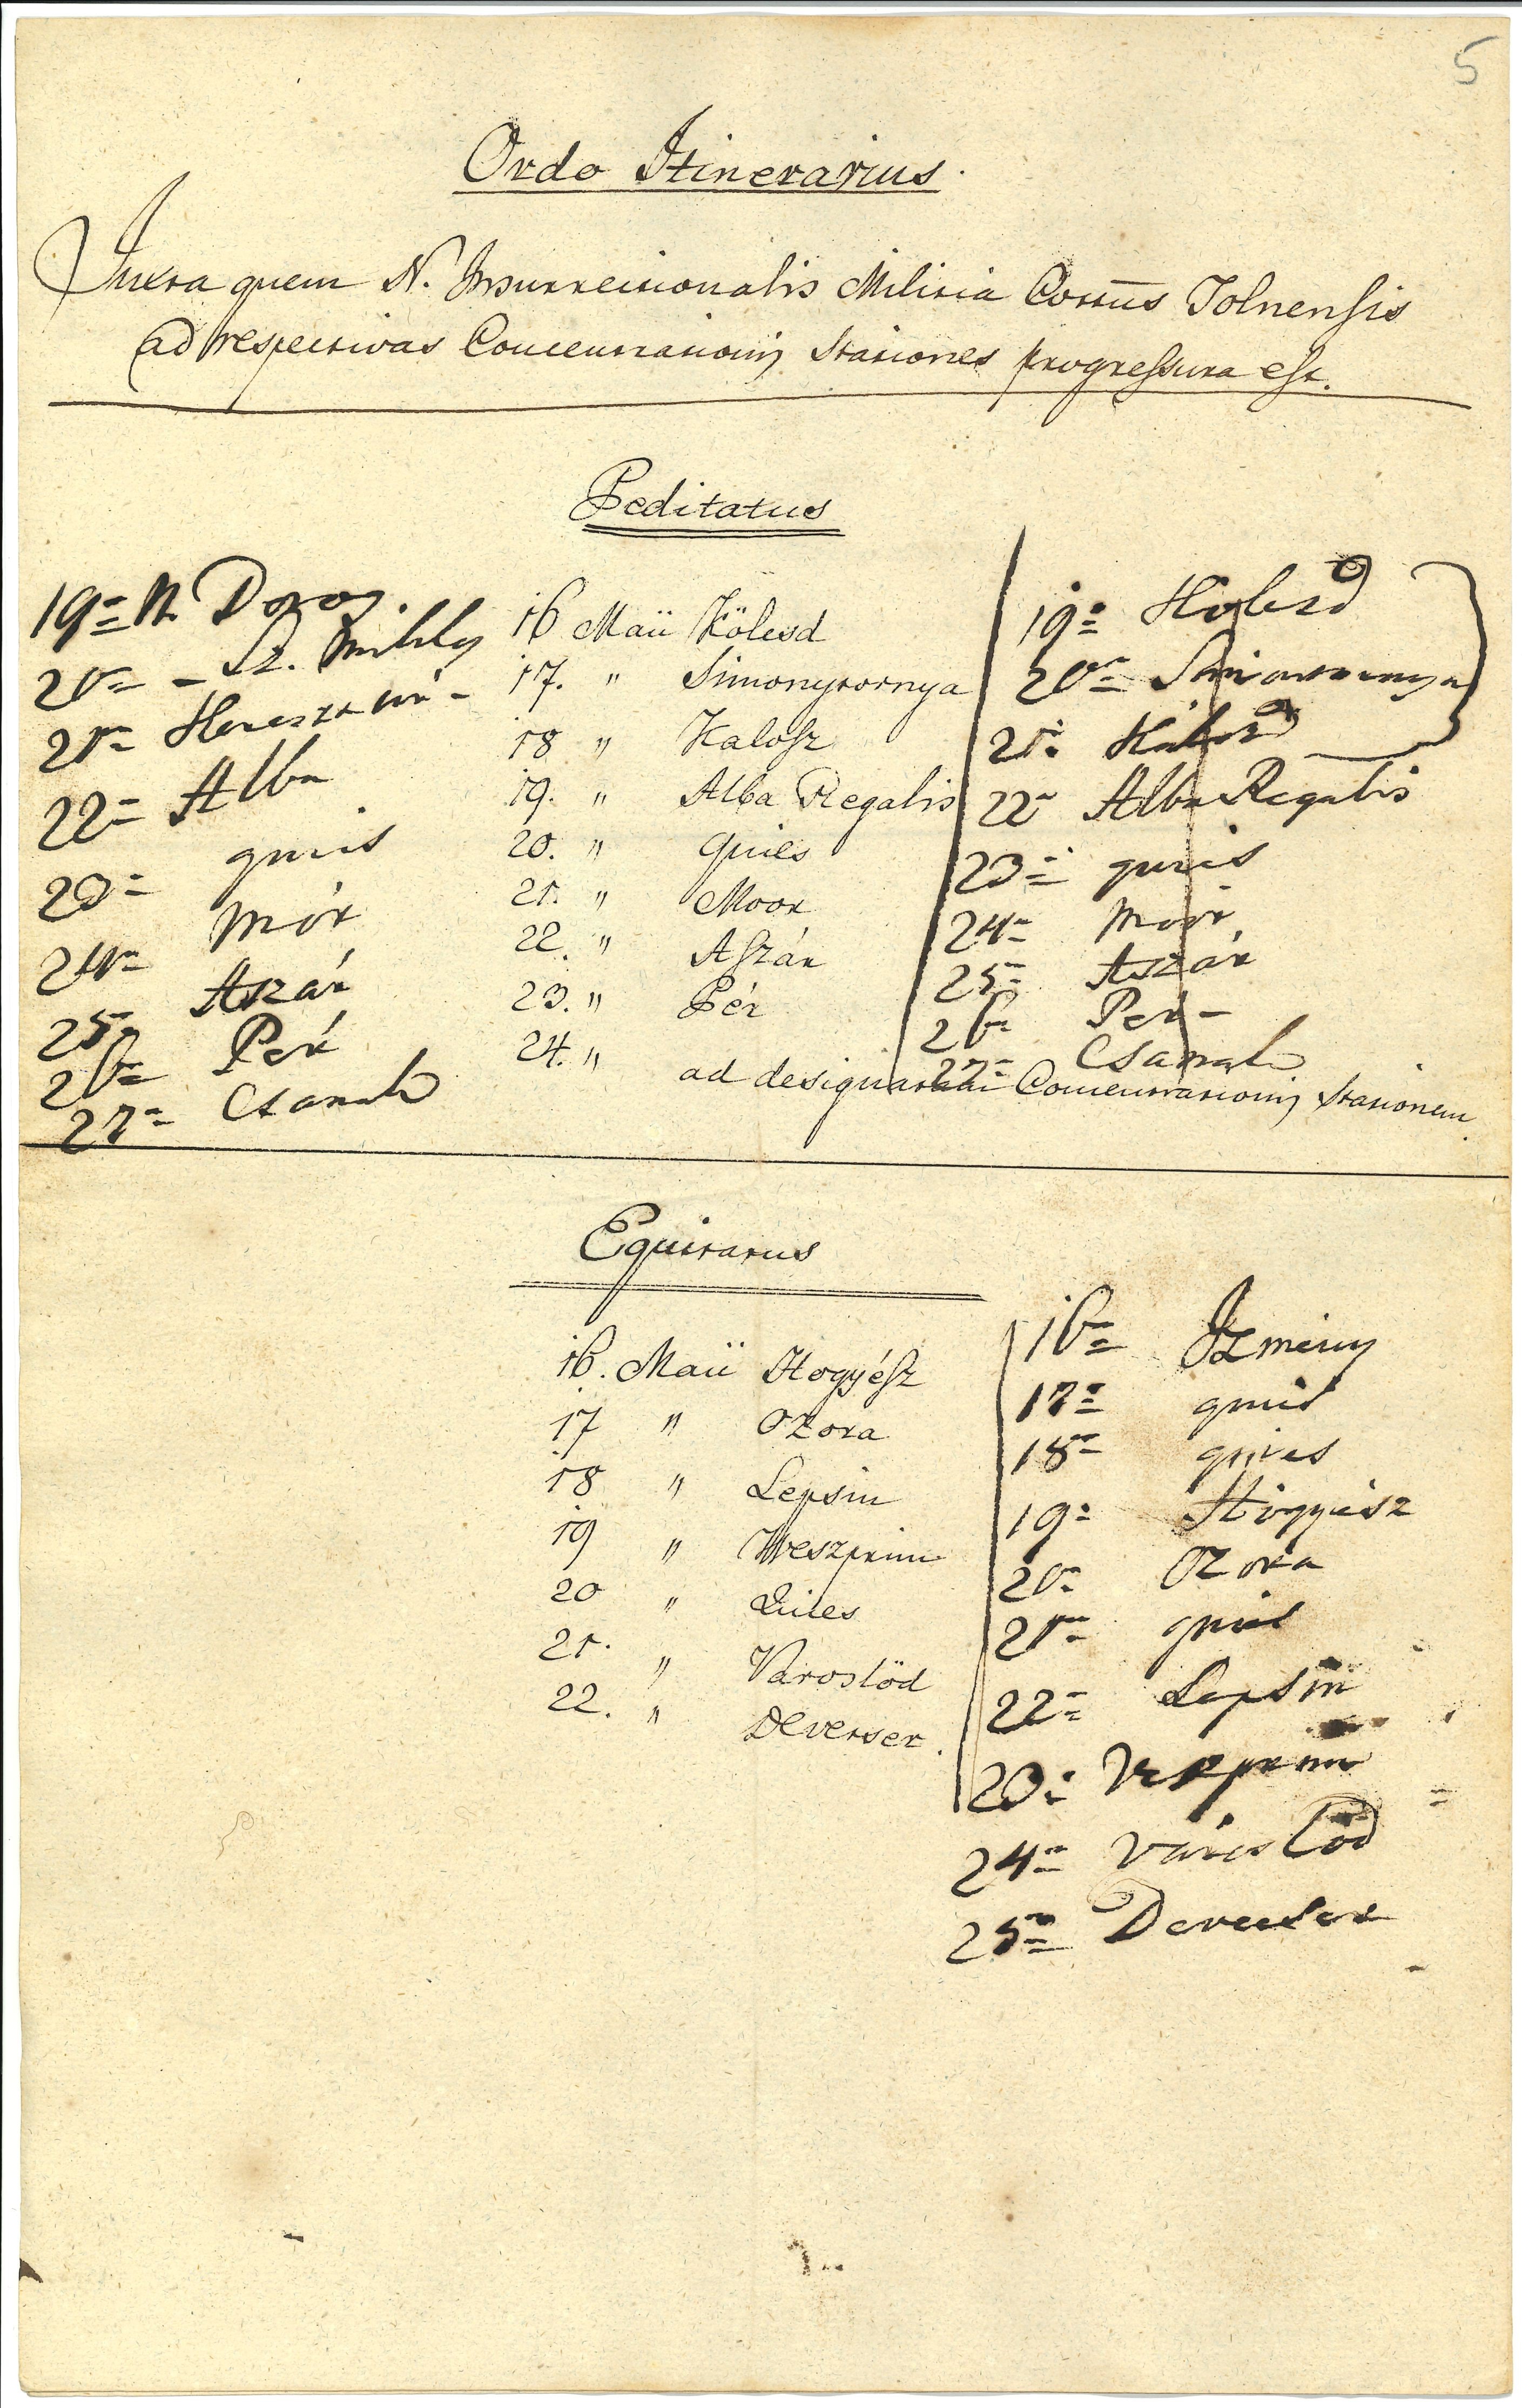 5
Ordo Itinerarius.
Juxta quem N. Insurrectionalis Militia Cottūs Tolnensis
ad respectivas Concentrationis Stationes progressura est.
Peditatus
19a N. Dorog.
20a - Sz. Mihály
21a
22a Alba
23a quies
24a Mór
25a Aszár
26a Pér
27a Csanak
16 Maii Kölesd
17. " Simonytornya
18 " Kalosz
19. " Alba Regalis
20. " Quies
21. " Moor
22. " Aszár
23. " Pér
24. " ad designatam Concentrationis Stationem.
19a Kölesd
20a Simontornya
21a Kálozd
22a Alba Regalis
23a quies
24a Moór
25a Aszár
26a Pér -
27a Csanak
Equitatus
16. Maii Hogyész
17 " Ozora
18 " Lepsin
19 " Weszprim
20 " Quies
21. " Varoslöd
22. " Devetser.
16a Izmény
17a quies
18a quies
19a Högyész
20a Ozora
21a quies
22a Lepsin
23a Veszprim
24a Városlöd
25a Devecser